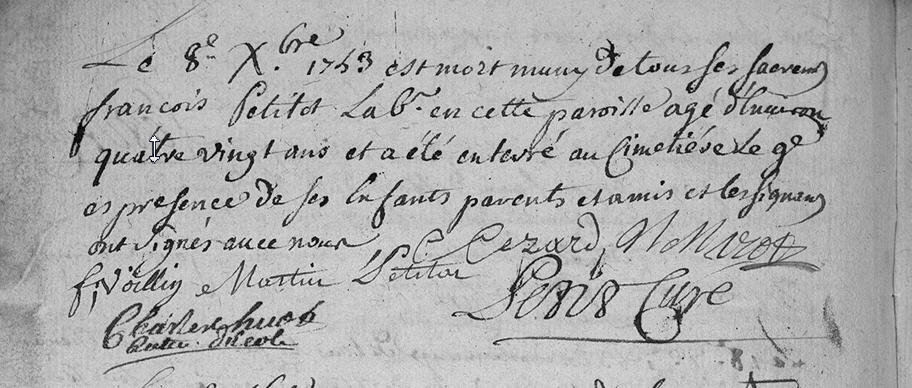 Le 8e Xbre 1743 est mort muny de tous ses sacrem
francois Petitot Labr en cette paroisse agé d'Environ
quatre vingt ans et a été enterré au Cimetiére le 9e
es presence de ses Enfants parents et amis et les signans
ont signés avec nous C Cezard N Mirot
f. Voillin Martin Petitot Penis Curé
Charles huot